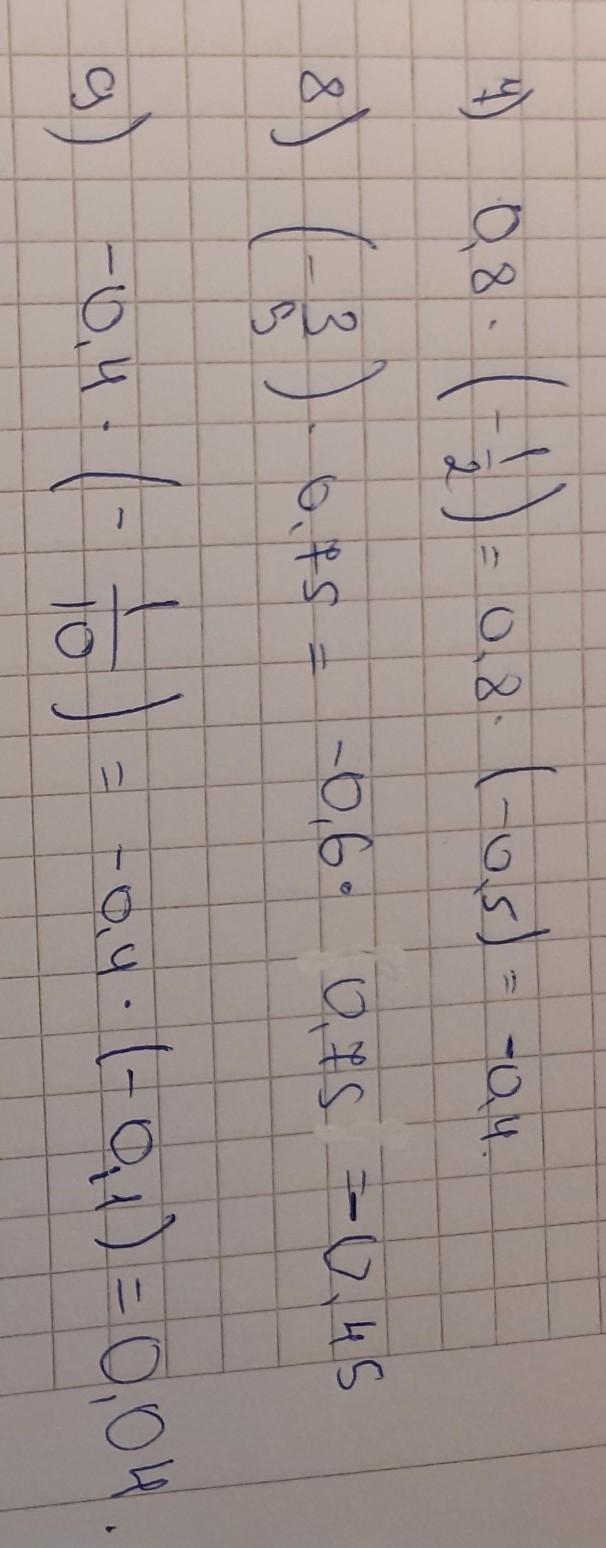 4) 0,8 · (-1/2) = 0,8 · (-0,5) = -0,4.
8) (-3/5) · 0,75 = -0,6 · 0,75 = -0,45
9) -0,4 · (-1/10) = -0,4 · (-0,1) = 0,04.